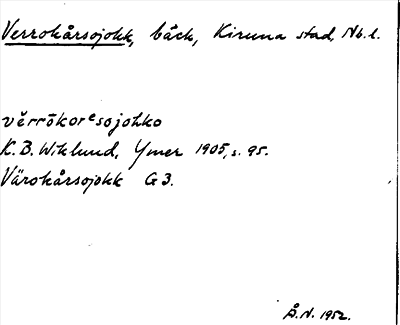 Verrokårsojokk, bäck, Kiruna stad, Nb.l.
vĕrrōkorᵉsojohko
K.B. Wiklund, Ymer 1905, s. 95.
Värokårsojokk G 3.
Å.N. 1952.